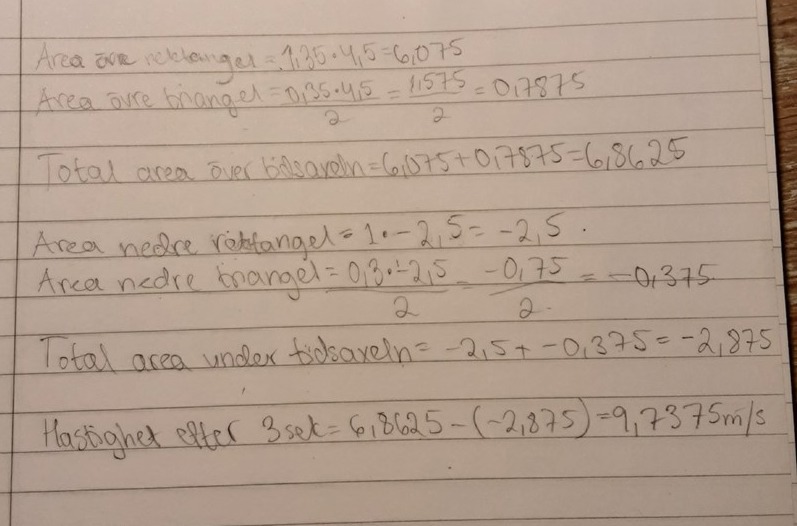 Area övre rektangel = 1,35 · 4,5 = 6,075
Area övre triangel = 0,35·4,5/2 = 1,575/2 = 0,7875
Total area över tidsaxeln = 6,075 + 0,7875 = 6,8625
Area nedre rektangel = 1 · -2,5 = -2,5.
Area nedre triangel = 0,3·-2,5/2 = -0,75/2 = -0,375
Total area under tidsaxeln = -2,5 + -0,375 = -2,875
Hastighet efter 3 sek = 6,8625 - (-2,875) = 9,7375 m/s